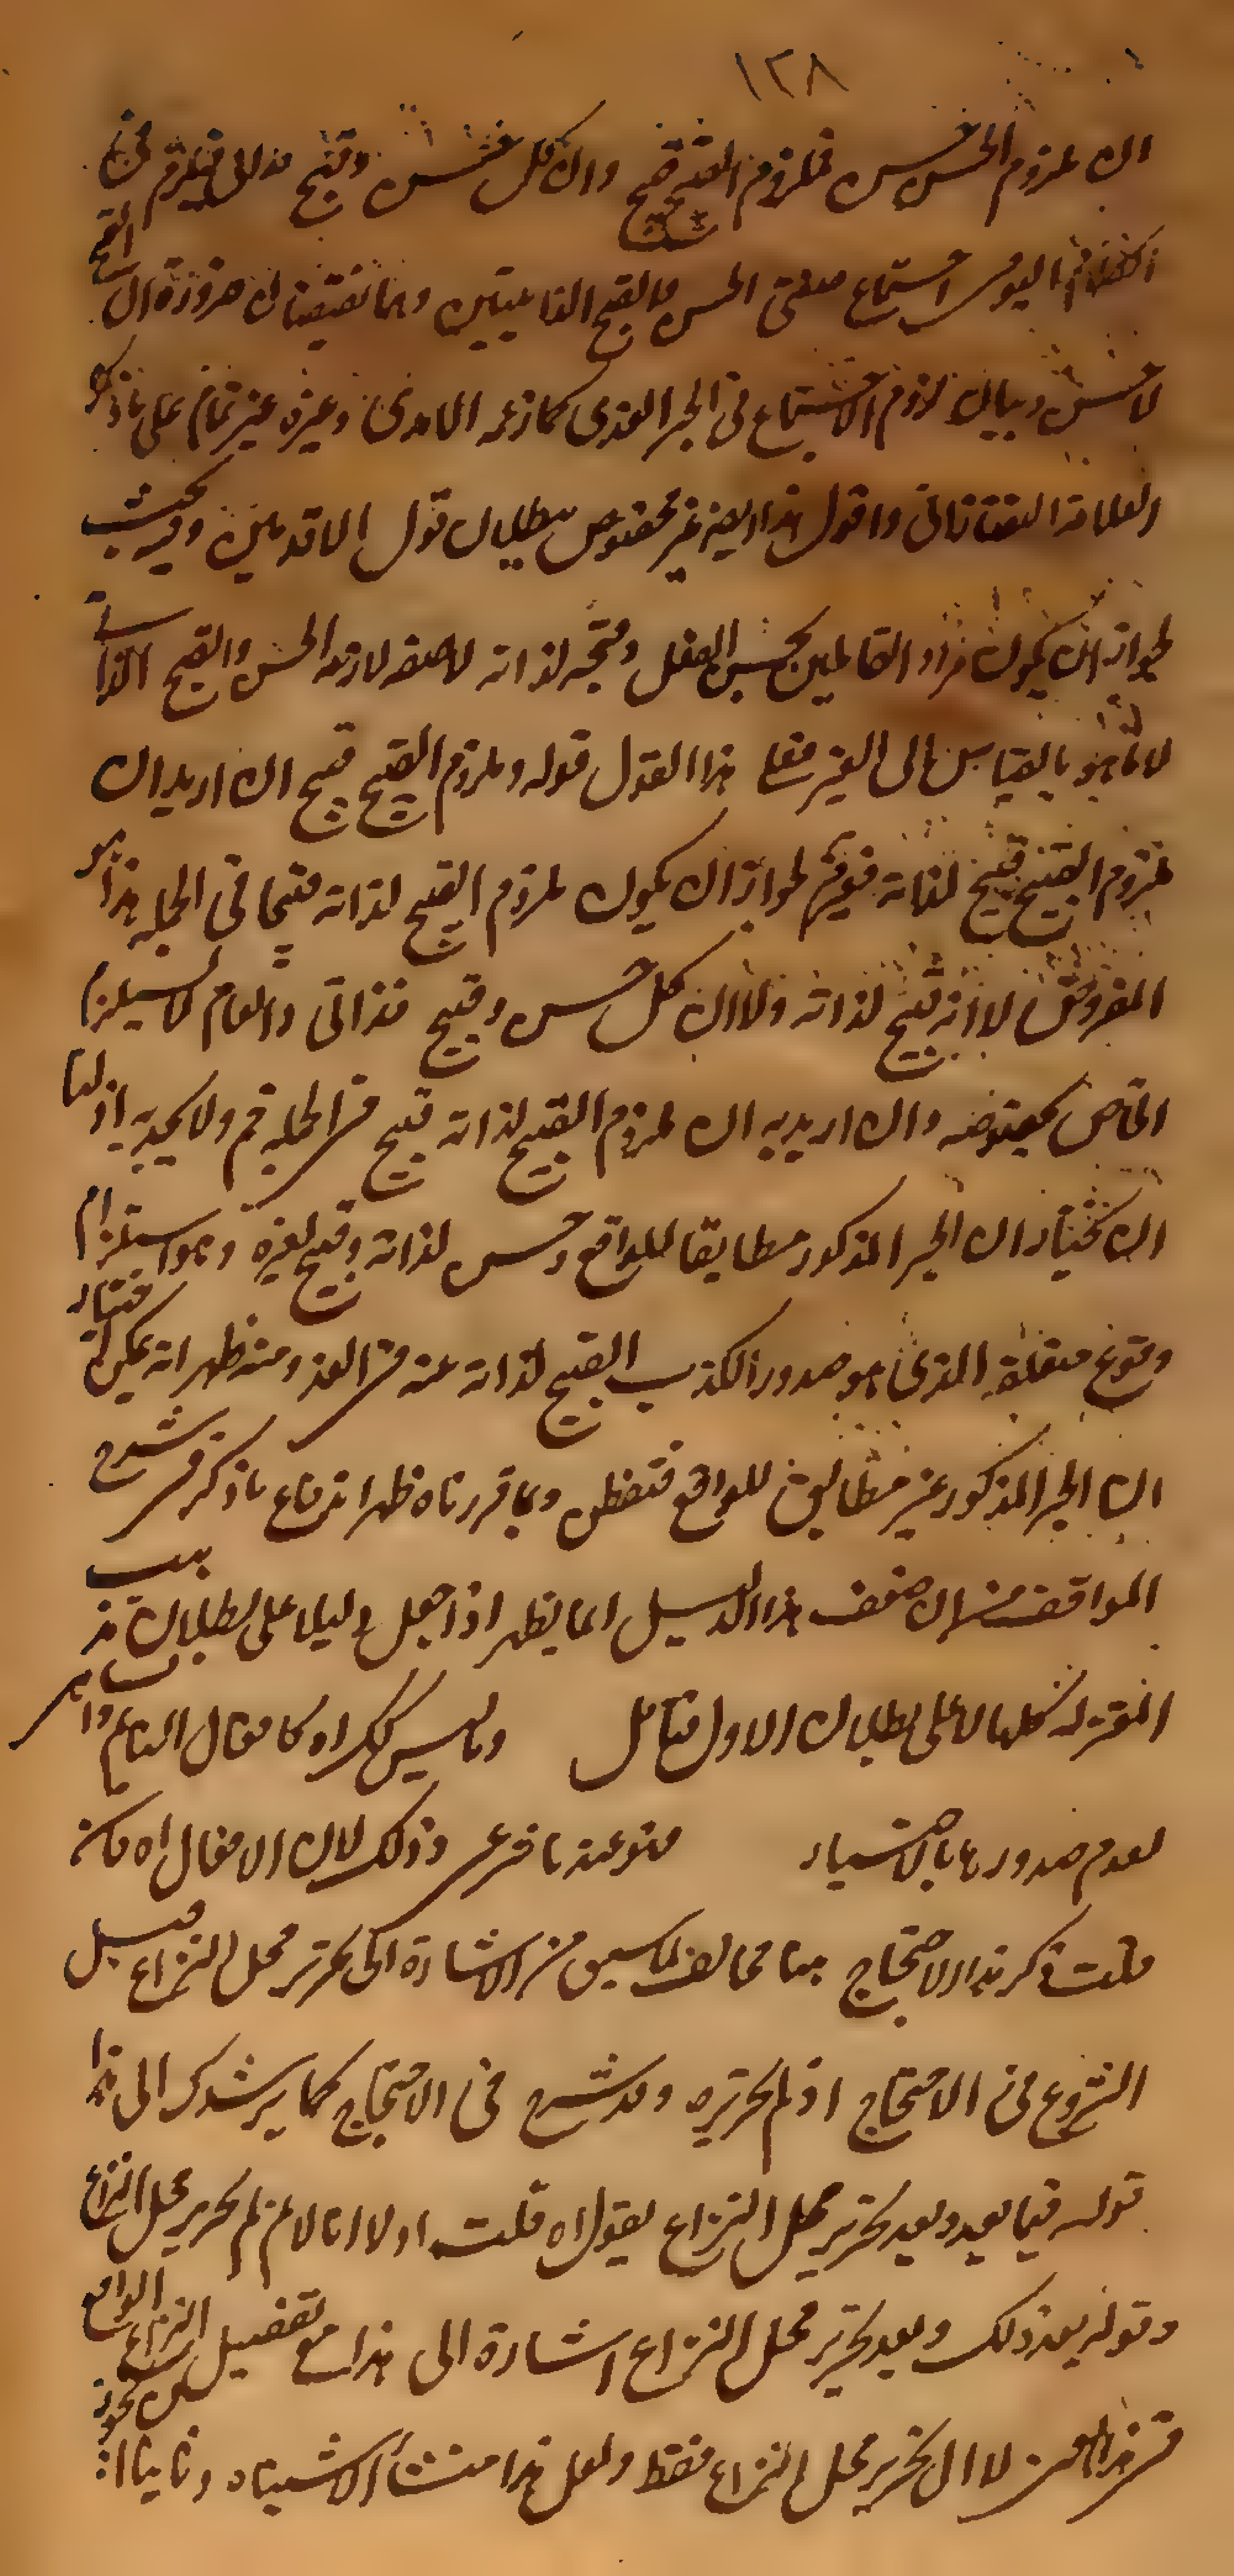 ١٢٨
ان ملزوم الحسن حسن فملزوم القبيح قبيح وان كل حسن وقبيح ذاتى فيلزم فى
اليوم اجتماع صفتى الحسن والقبح الذاتيتين وهما نقيضان ضرورة ان القبح
لا حسن وبيان لزوم الاجتماع فى الخبر الغدى كما زعمه الآمدى وغيره غير تمام على ما ذكره
العلامة التفتازانى واقول هذا ايضا غير مخصوص ببطلان قول الاقدمين وفيه بحث
لجواز ان يكون مراد القائلين بحسن الفعل وقبحه لذاته لا لصفة لازمة الحسن والقبح الذاتى
لا ما هو بالقياس الى الغير فعلى هذا القول قوله وملزوم القبيح قبيح ان اريد ان
ملزوم القبيح قبيح لذاته فهو ثم لجواز ان يكون ملزوم القبيح لذاته قبيحا فى الجملة هذا هو
المفروض لا انه قبيح لذاته ولا ان كل حسن وقبيح فذاتى والعام لا يستلزم
الخاص بخصوصه وان اريد به ان ملزوم القبيح لذاته قبيح فى الجملة فم ولا يجديه اذ لنا
ان نختار ان الخبر المذكور مطابقا للواقع وحسن لذاته وقبيح لغيره وهو استلزام
وقوع متعلقه الذى هو صدور الكذب القبيح لذاته عنه فى الغد ومنه ظهر انه يمكن اختيار
ان الخبر المذكور غير مطابق للواقع فتفطن وبما قررناه ظهر اندفاع ما ذكر فى شرح
المواقف من ان ضعف هذا الدليل انما يظهر اذا جعل دليلا على بطلان مذهب
المعتزلة كلها لا على بطلان الاول فتأمل وليس كذلك اه كافعال النائم والساهى
لعدم صدورها بالاختيار ممنوعة ما فى عن وذلك لان الافعال اه فان
قلت ذكر هذا الاحتجاج هنا مخالف لما سبق من الاشارة الى تحرير محل النزاع قبل
الشروع فى الاحتجاج اذ لم يحرره وقد شرع فى الاحتجاج كما يرشدك الى هذا
قوله فيما بعد وبعد تحرير محل النزاع يقول اه قلت اولا انا لانم انه لم يحرر محل النزاع
وقوله بعد ذلك وبعد تحرير محل النزاع اشارة الى هذا مع تفصيل النزاع الواقع
فى هذا لا الى تحرير محل النزاع فقط ولعل هذا منشأ الاشتباه وثانيا انه